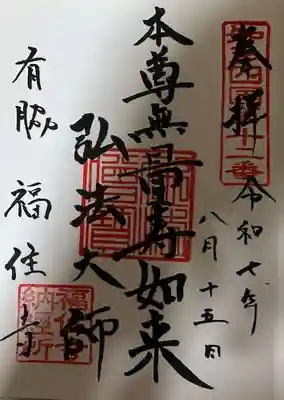 奉拝
令和七年
八月十五日
本尊無量寿如来
弘法大師
有脇 福住寺
福住寺
納経所